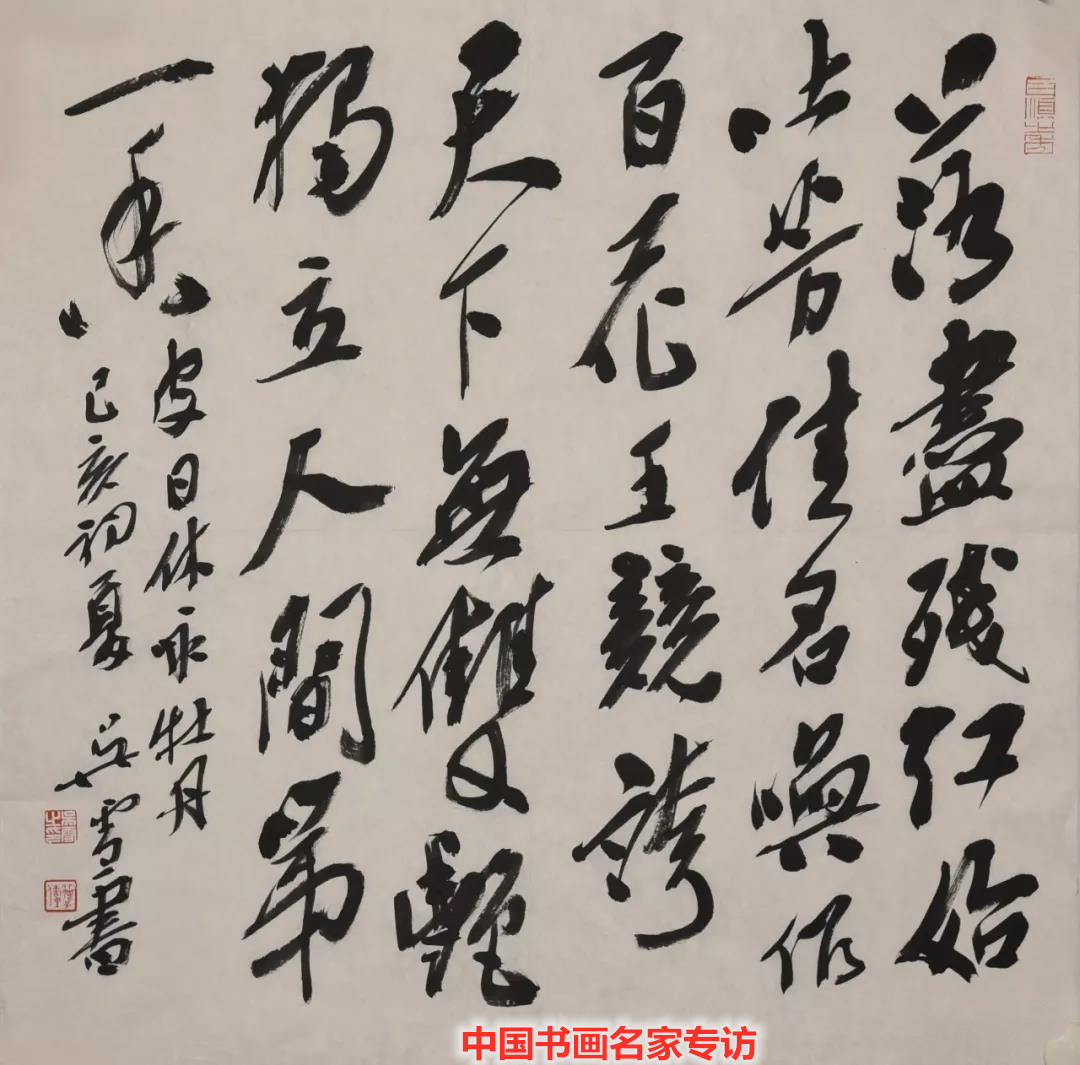 落盡残红始
吐芳佳名唤作
百花王競誇
天下無雙艷
獨立人間第
一香
皮日休咏牡丹
己亥初夏 吴雪書
中国书画名家专访